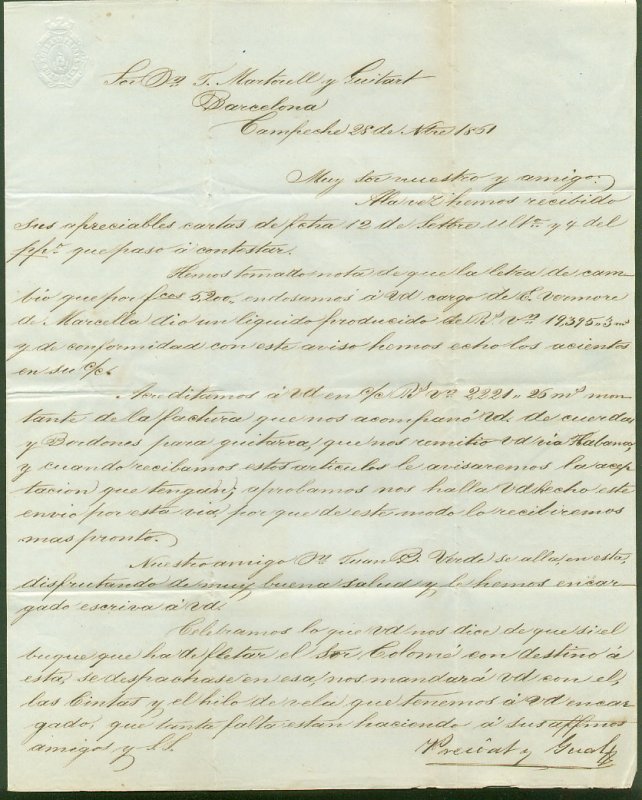 Sor Dn. T. Martorell y Guitart
Barcelona
Campeche 28 de Nbre 1851
Muy Sor nuestro y amigo:
A la vez hemos recibido
sus apreciables cartas de fcha 12 de Settre ulto. y 4 del
ppo. que paso á contestar.
Hemos tomado nota de que la letra de cam-
bio que por fces 5200. endosamos á Vd cargo de E. Vormore
de Marcella dio un liquido producido de Rs. Vn. 19,395 3 ms
y de conformidad con este aviso hemos echo los acientos
en su c/c.
Acreditamos á Vd en c/c Rs Vn 2221 26 ms mon-
tante de la factura que nos acompanó Vd. de cuerdas
y Bordones para guitarra, que nos remitio Vd via Habana,
y cuando recibamos estos articulos le avisaremos la acep-
tacion que tengan; aprobamos nos halla Vd hecho este
envio por esta via, por que de este modo lo recibiremos
mas pronto.
Nuestro amigo Dn Juan B. Verde se alla, en esta,
disfrutando de muy buena salud y le hemos encar-
gado escriva á Vd.
Celebramos lo que Vd nos dice de que si el
buque que ha de fletar el Sor Colomé con destino á
esta, se despachase en esa, nos mandará Vd con el,
las Cintas y el hilo de vela que tenemos á Vd encar-
gado, que tanta falta estan haciendo á sus affmos
amigos y S.S.
Preciat y Gual